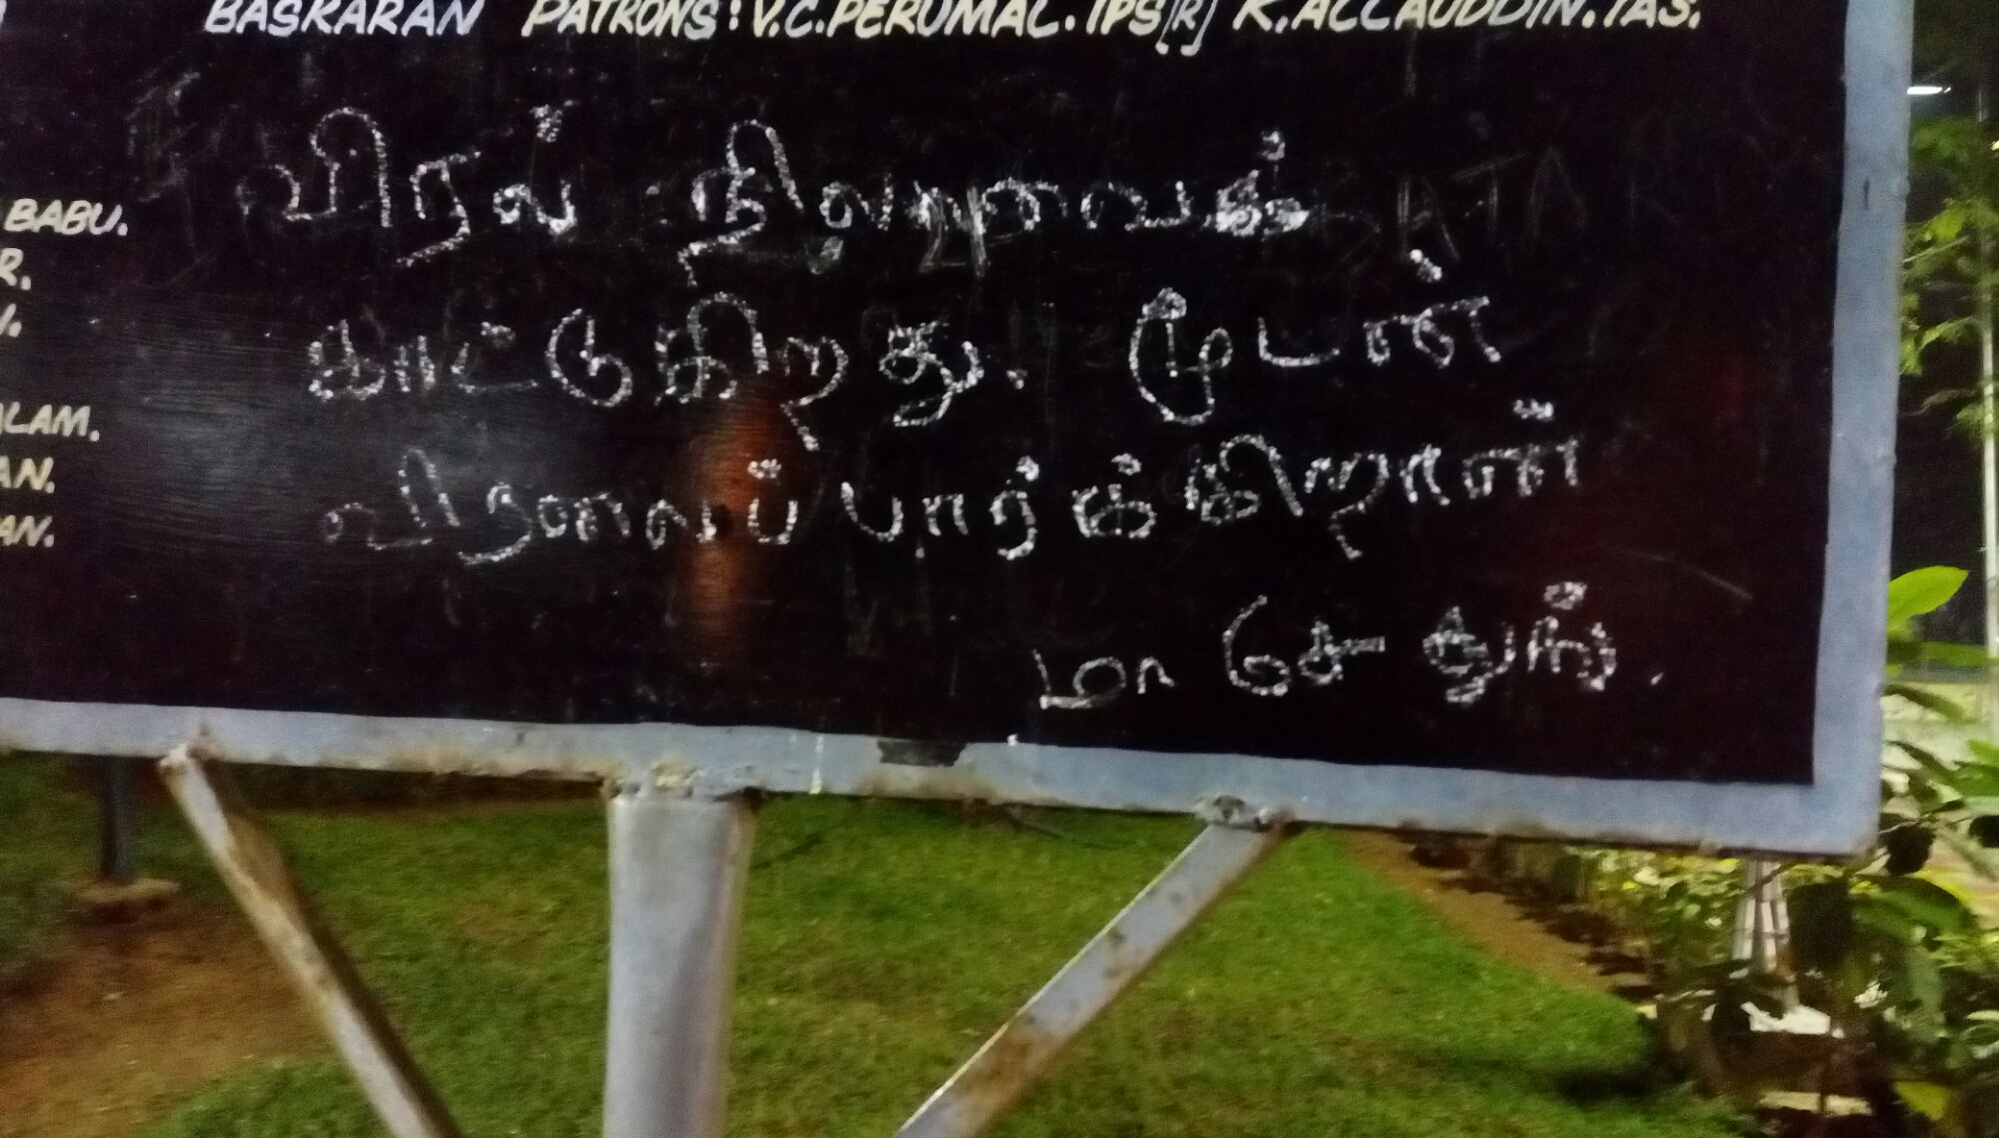 BASKARAN PATRONS: V.C.PERUMAL. IPS[R] K.ALLAUDDIN. IAS.
BABU.
R.
ALAM.
AN.
AN.
விரல் நிலாவைக்
காட்டுகிறது. மூடன்
விரலைப் பார்க்கிறான்
மா சே துங்.